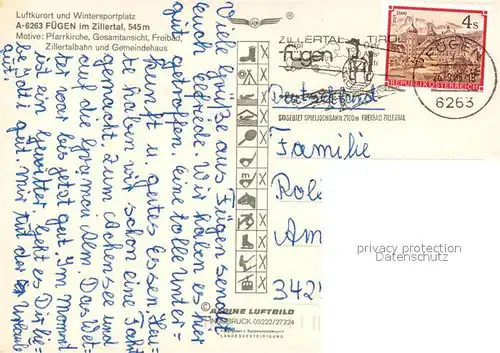 Luftkurort und Wintersportplatz
A-6263 FÜGEN im Zillertal, 545m
Motive: Pfarrkirche, Gesamtansicht, Freibad,
Zillertalbahn und Gemeindehaus
Viele Grüße aus Fügen sendet
Elfriede. Wir haben es hier
getroffen. Eine tolle Unter=
kunft u. gutes Essen. Heu=
te haben wir schon eine Fahrt
gemacht, zum Achensee und
auf die Gramai Alm. Das Wet=
ter war bis jetzt gut. Im Moment
ist ein Gewitter. Geht es Dir lie=
be gut. Mir tut der Urlaub
gut.
ZILLERTAL TIROL
fügen
SKIGEBIET SPIELJOCHBAHN 2100m FREIBAD ZILLERTAL
4 s
REPUBLIK ÖSTERREICH
FÜGEN
6263
Deutschland
Familie
Am
342
privacy protection
Datenschutz
© ALPINE LUFTBILD
INNSBRUCK 05222/27324
LANDESVERTEIDIGUNG